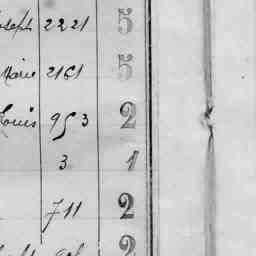 Joseph 2221 5
Marie 2161 5
Louis 953 2
3 1
711 2
2